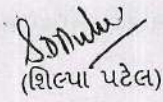 (શિલ્પા પટેલ)